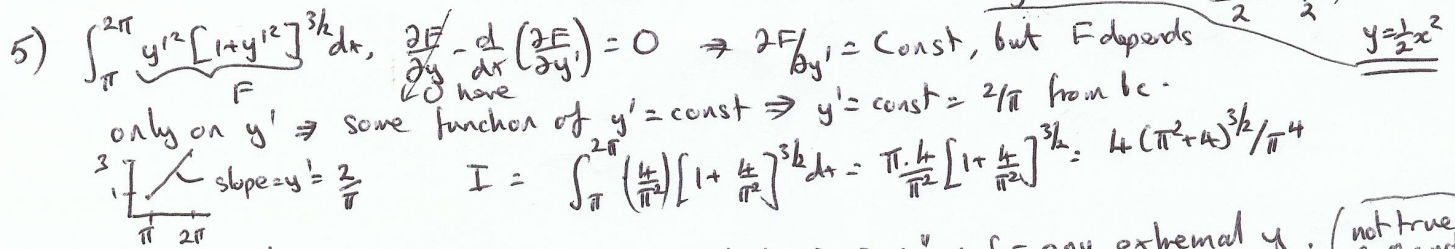 2 2
5) ∫_π^{2π} y'² [1+y'²]^{3/2} dx, ∂F/∂y - d/dx (∂F/∂y') = 0 ⇒ ∂F/∂y' = Const, but F depends y=½x²
F ↙0 here
only on y' ⇒ some function of y' = const ⇒ y' = const = 2/π from bc.
3 1 slope = y' = 2/π I = ∫_π^{2π} (4/π²) [1+ 4/π²]^{3/2} dx = π·4/π² [1+ 4/π²]^{3/2} = 4(π²+4)^{3/2}/π⁴
π 2π
any extremal y. (not true